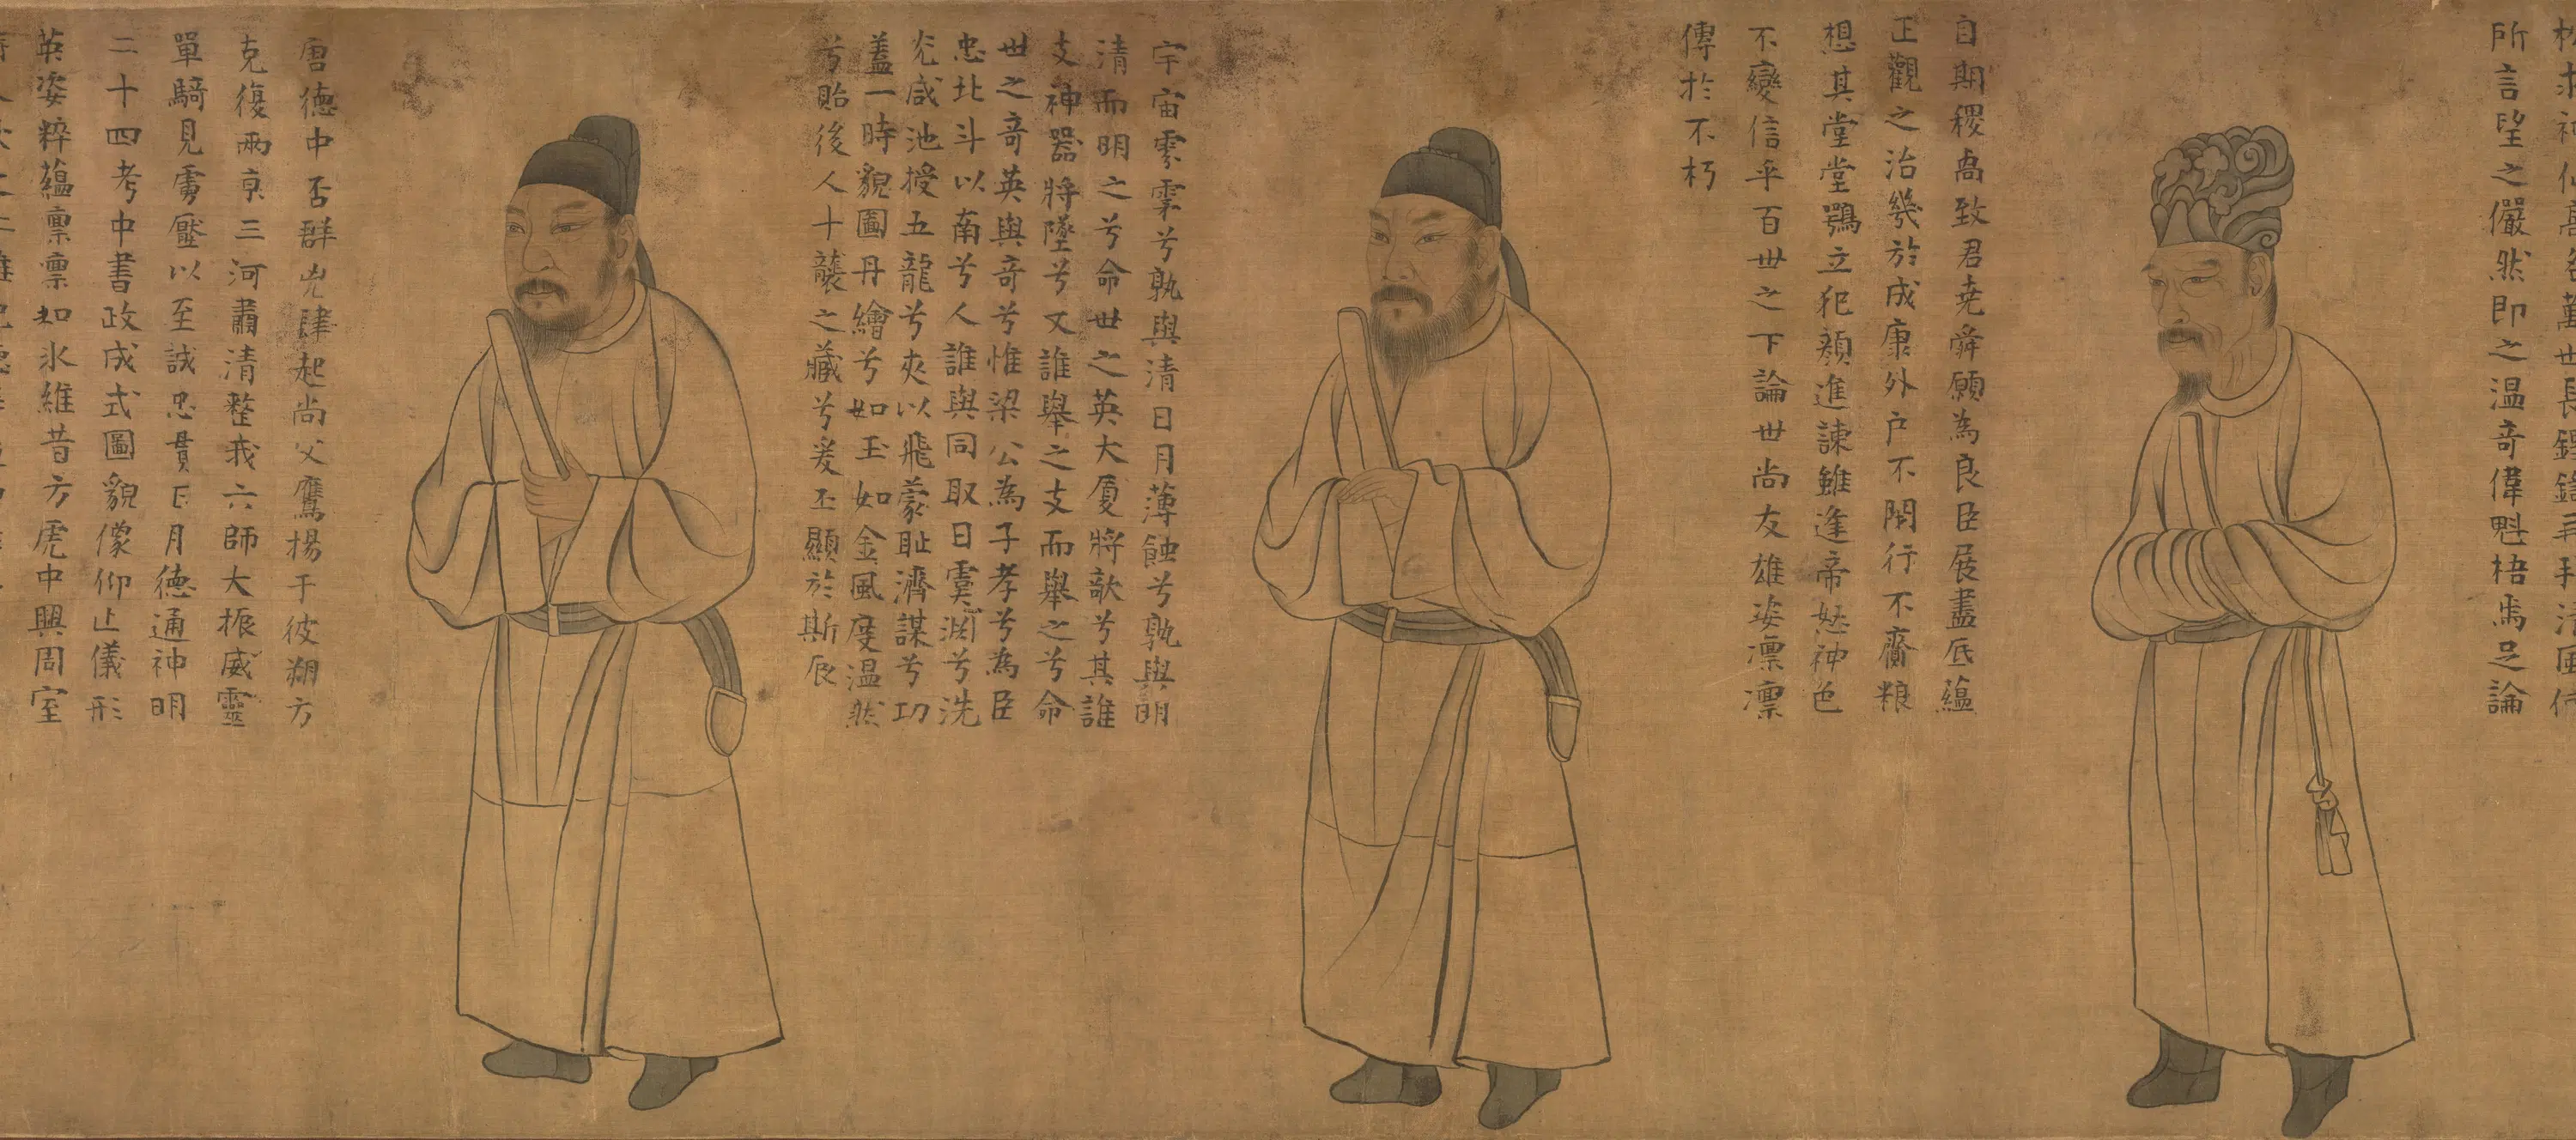 所言望之儼然即之温奇偉魁梧焉足論
自期稷卨致君尭舜願為良臣展盡底藴
正觀之治幾於成康外户不閉行不賫粮
想其堂堂鶚立犯顏進諫雖逢帝怒神色
不變信乎百世之下論世尚友雄姿凛凛
傳於不朽
宇宙雺霧兮孰與清日月薄蝕兮孰與明
清而明之兮命世之英大廈將欹兮其誰
支神器將墜兮又誰舉之支而舉之兮命
世之奇英與奇兮惟梁公為子孝兮為臣
忠北斗以南兮人誰與同取日虞淵兮洗
光咸池授五龍兮夾以飛蒙耻濟謀兮功
蓋一時貌圖丹繪兮如玉如金風度温然
兮貽後人十襲之藏兮爰丕顯於斯辰
唐德中否群兇肆起尚父鷹揚于彼朔方
克復兩京三河肅清整我六師大振威靈
單騎見虜壓以至誠忠貫日月德通神明
二十四考中書政成式圖貌像仰止儀形
英姿粹藴凛凛如氷維昔方虎中興周室